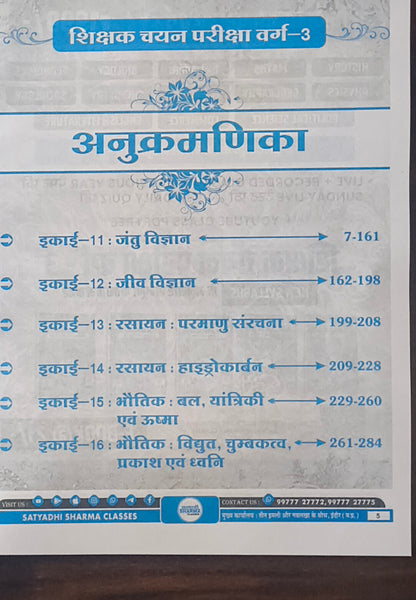 शिक्षक चयन परीक्षा वर्ग–3
अनुक्रमणिका
इकाई–11 : जंतु विज्ञान 7-161
इकाई–12 : जीव विज्ञान 162-198
इकाई–13 : रसायन : परमाणु संरचना 199-208
इकाई–14 : रसायन : हाइड्रोकार्बन 209-228
इकाई–15 : भौतिक : बल, यांत्रिकी 229-260
एवं ऊष्मा
इकाई–16 : भौतिक : विद्युत, चुम्बकत्व, 261-284
प्रकाश एवं ध्वनि
VISIT US : CONTACT US : 99777 27772,99777 27775
SATYADHI SHARMA CLASSES मुख्य कार्यालय : तीन इमली और नवलखा के बीच, इंदौर (म.प्र.) 5